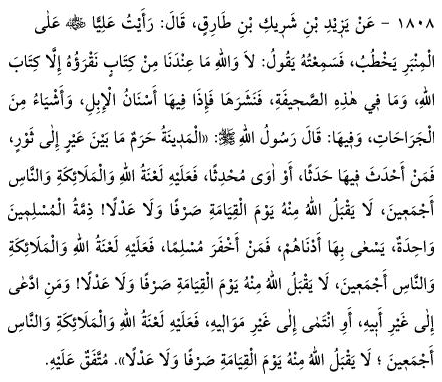 ١٨٠٨ - عَنْ يَزِيْدِ بْنِ شَرِيكِ بْنِ طَارِقٍ، قَالَ: رَأَيْتُ عَلِيًّا ﷺ عَلَى
الْمِنْبَرِ يَخْطُبُ، فَسَمِعْتُهُ يَقُولُ: لاَ وَاللهِ مَا عِنْدَنَا مِنْ كِتَابٍ نَقْرَؤُهُ إِلَّا كِتَابَ
اللهِ، وَمَا فِي هَذِهِ الصَّحِيفَةِ، فَنَشَرَهَا فَإِذَا فِيهَا أَسْنَانُ الْإِبِلِ، وَأَشْيَاءُ مِنَ
الْجَرَاحَاتِ، وَفِيهَا: قَالَ رَسُولُ اللهِ ﷺ: «الْمَدِينَةُ حَرَمٌ مَا بَيْنَ عَيْرٍ إِلَى ثَوْرٍ،
فَمَنْ أَحْدَثَ فِيهَا حَدَثًا، أَوْ اٰوَى مُحْدِثًا، فَعَلَيْهِ لَعْنَةُ اللهِ وَالْمَلَائِكَةِ وَالنَّاسِ
أَجْمَعِينَ، لَا يَقْبَلُ اللهُ مِنْهُ يَوْمَ الْقِيَامَةِ صَرْفًا وَلَا عَدْلًا! ذِمَّةُ الْمُسْلِمِينَ
وَاحِدَةٌ، يَسْعَى بِهَا أَدْنَاهُمْ، فَمَنْ أَخْفَرَ مُسْلِمًا، فَعَلَيْهِ لَعْنَةُ اللهِ وَالْمَلَائِكَةِ
وَالنَّاسِ أَجْمَعِينَ، لَا يَقْبَلُ اللهُ مِنْهُ يَوْمَ الْقِيَامَةِ صَرْفًا وَلَا عَدْلًا! وَمَنِ ادَّعَى
إِلَى غَيْرِ أَبِيهِ، أَوِ انْتَمَى إِلَى غَيْرِ مَوَالِيهِ، فَعَلَيْهِ لَعْنَةُ اللهِ وَالْمَلَائِكَةِ وَالنَّاسِ
أَجْمَعِينَ ؛ لَا يَقْبَلُ اللهُ مِنْهُ يَوْمَ الْقِيَامَةِ صَرْفًا وَلَا عَدْلًا». مُتَّفَقٌ عَلَيْهِ.